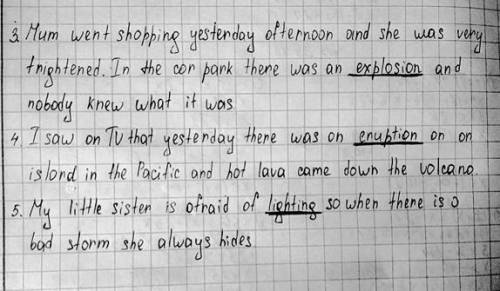 3. Mum went shopping yesterday afternoon and she was very
frightened. In the car park there was an explosion and
nobody knew what it was
4. I saw on TV that yesterday there was an eruption on an
island in the Pacific and hot lava came down the volcano.
5. My little sister is afraid of lighting so when there is a
bad storm she always hides